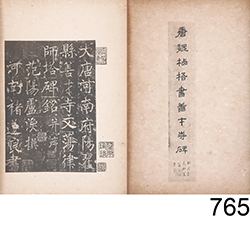 唐魏栖梧書善才寺碑
大唐河南府陽翟
縣善才寺文蕩律
師塔碑銘并序
范陽盧渙撰
河南褚遂良書
765